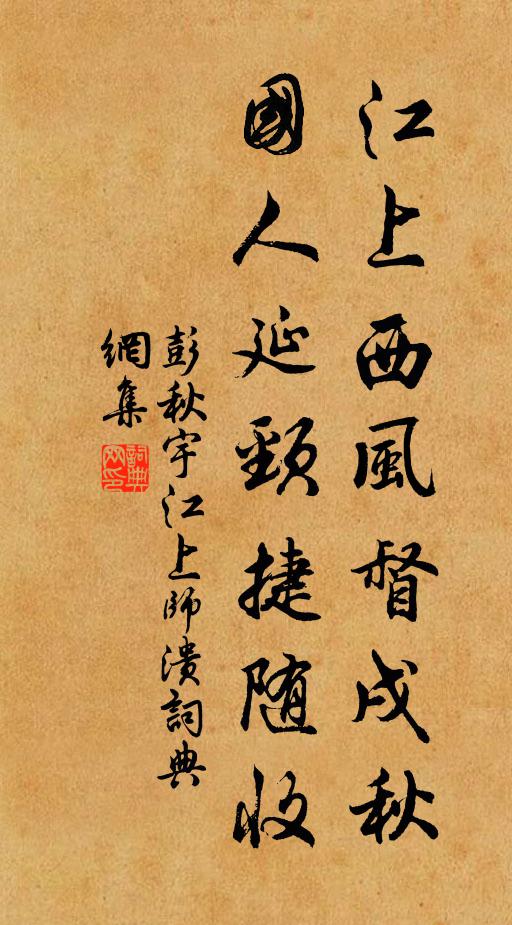 江上西風督戍秋
國人延頸捷随收
彭秋宇江上師潰詞典
網集
詞典
网印